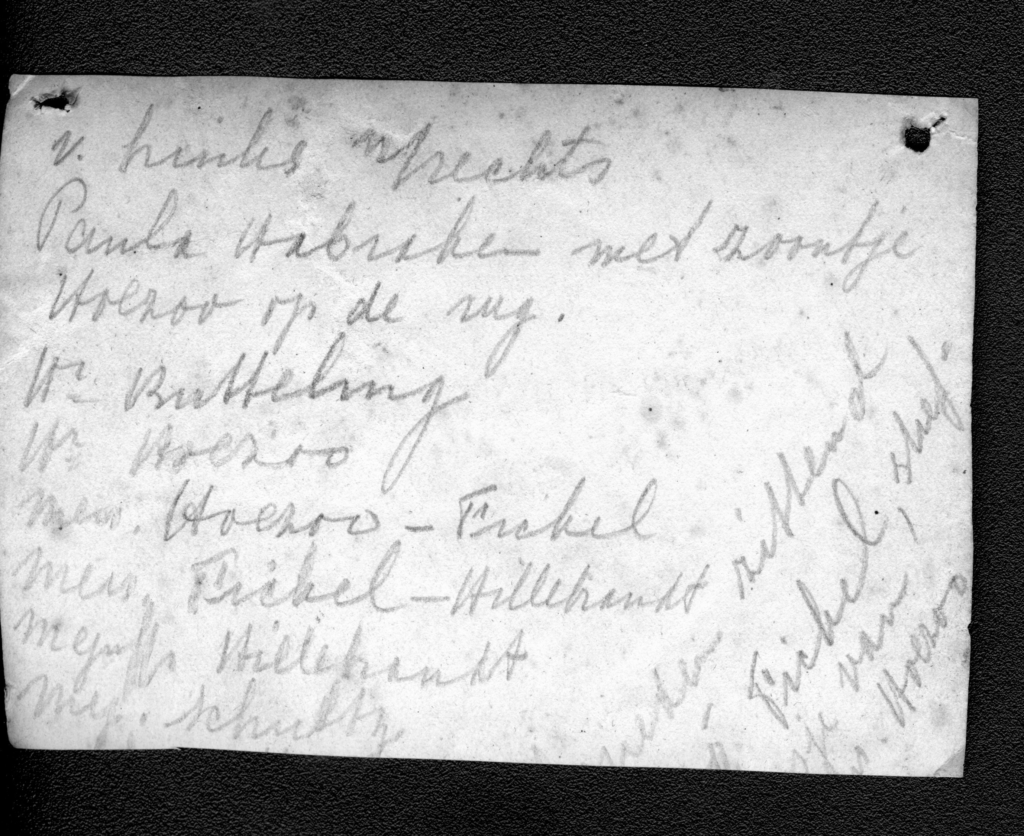 v. links n/rechts
Paula Habraken met zoontje
Hoezoo op de rug.
Hr Rutteling
Hr Hoezoo
mevr. Hoezoo - Fickel
mevr. Fickel - Hillebrandt
mejuffr Hillebrandt
mej. Schultz
zittend
Fickel, stief.
van
Hoezoo